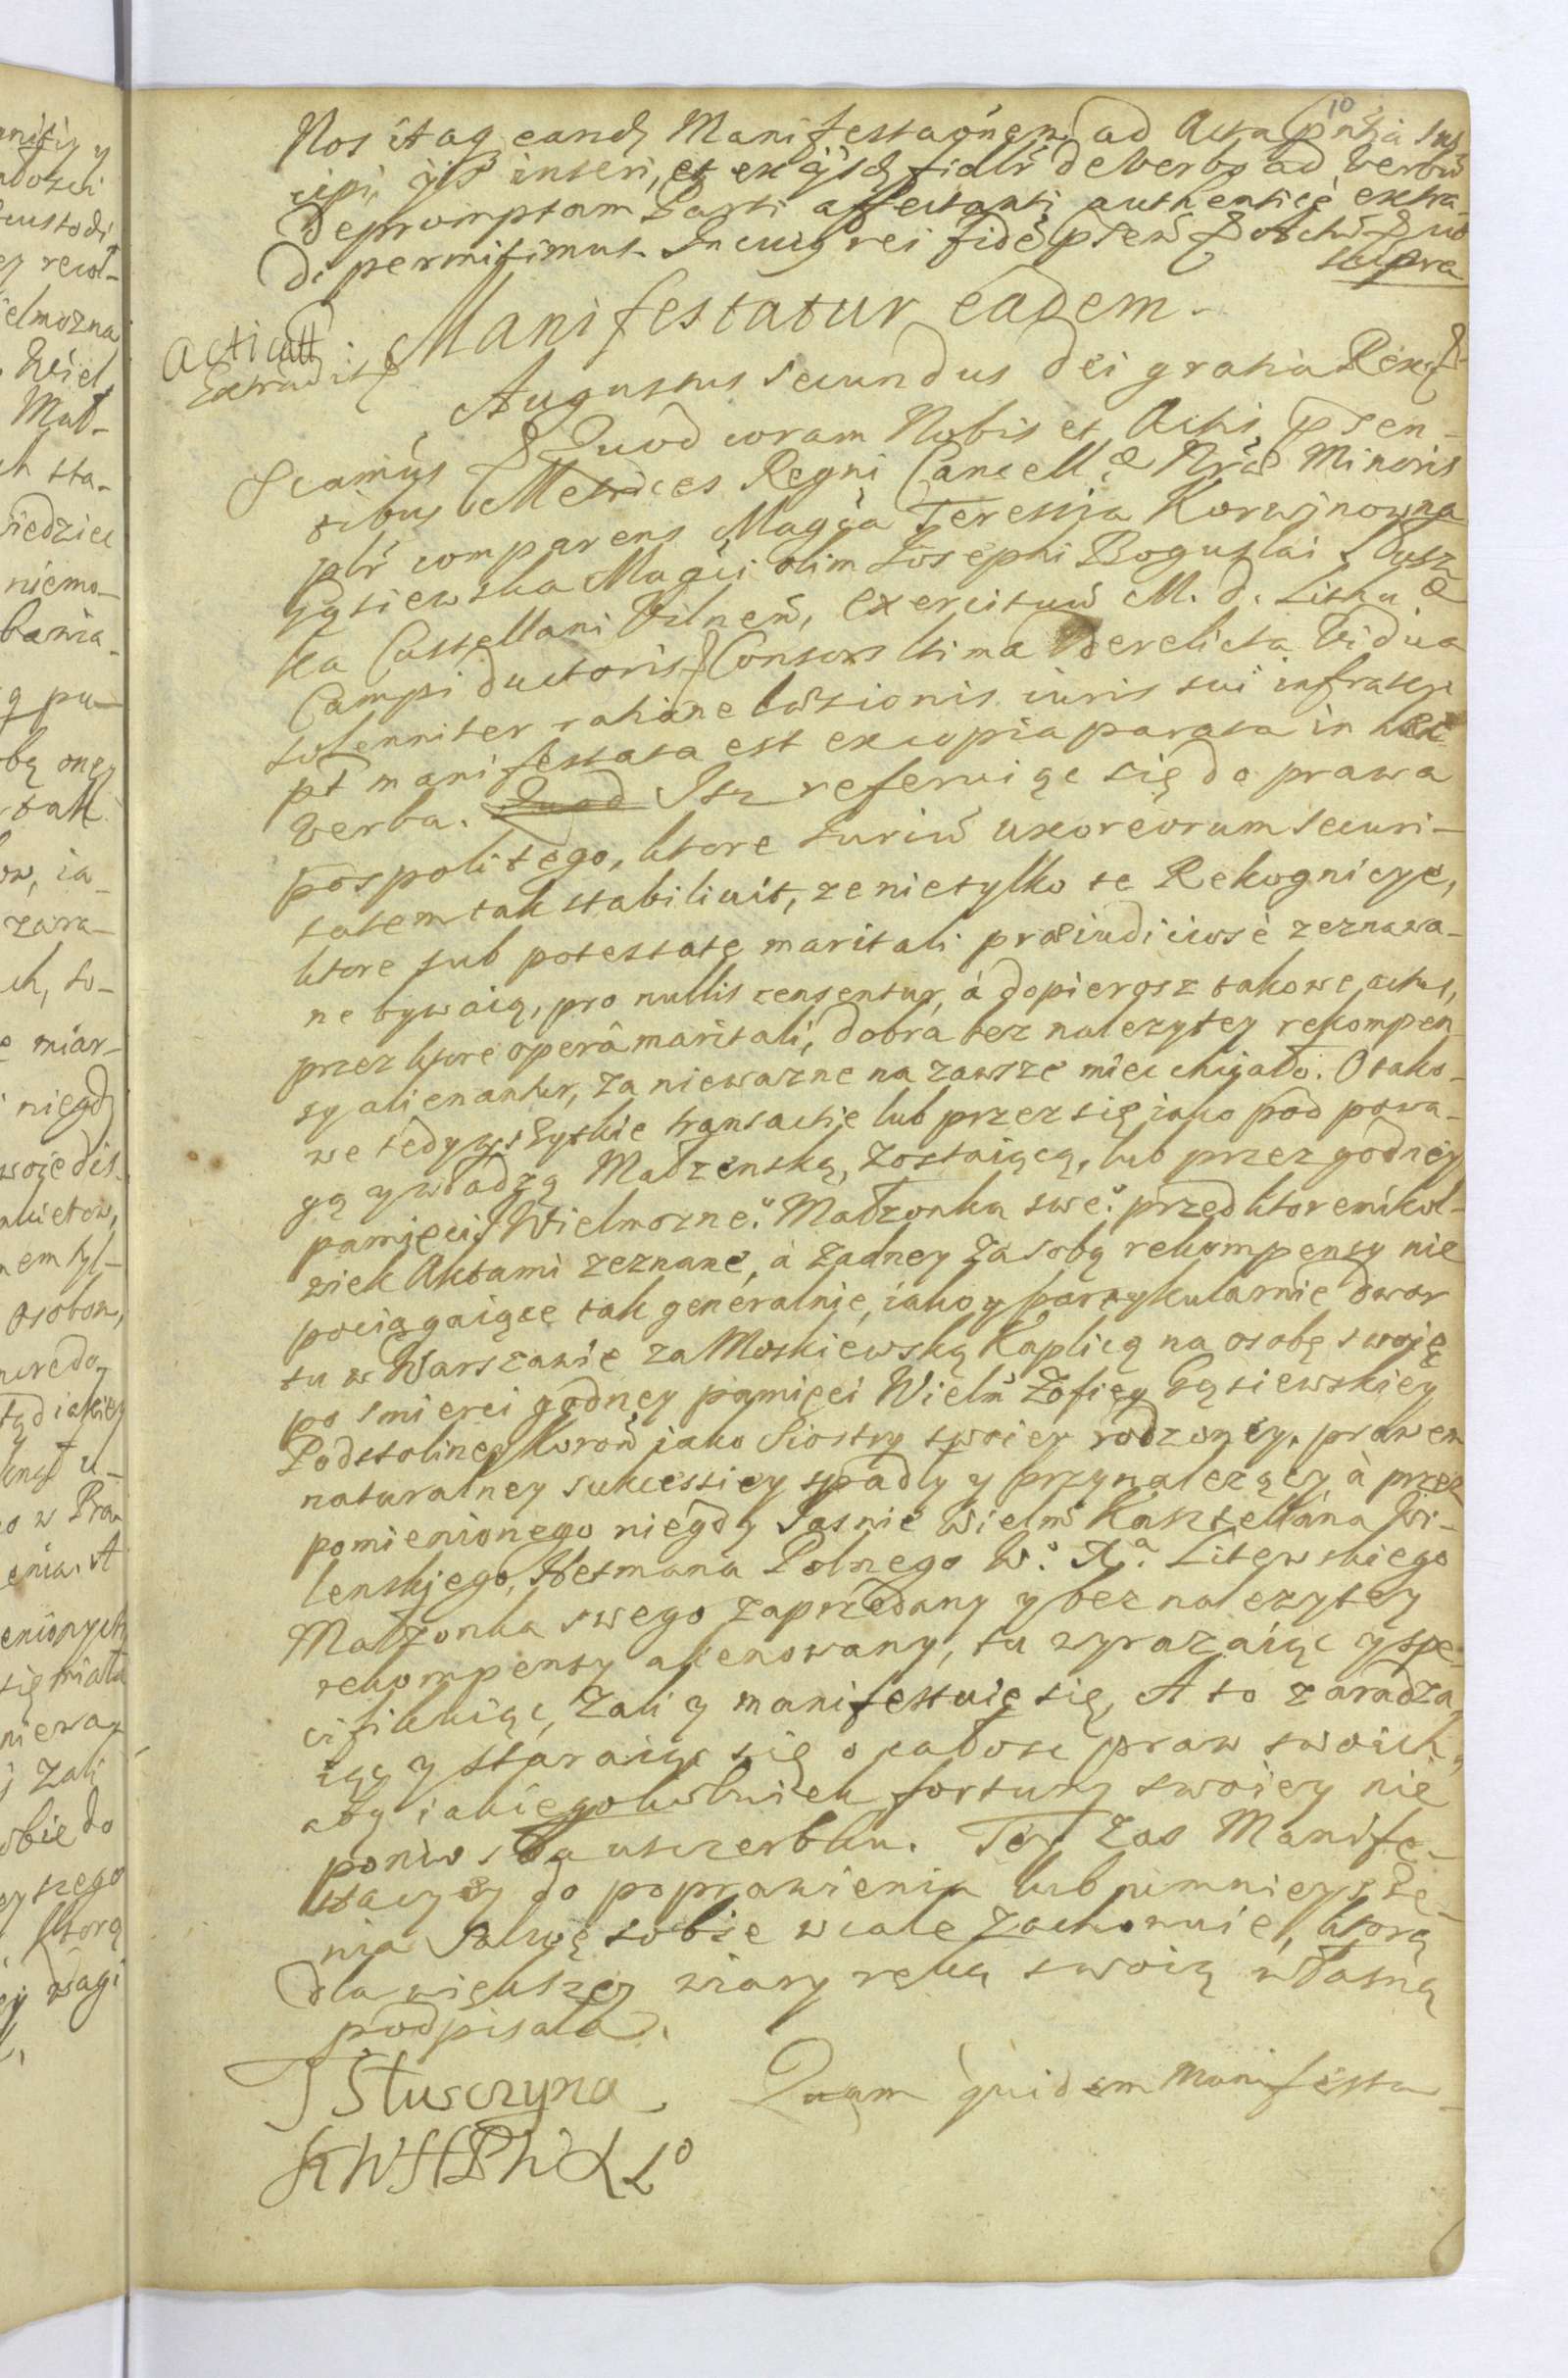 10
Nos itaq eandē Manifestaõnem ad Acta pñtia sus
cipi, ijsq̃ inseri, et ex ijsdē fidlr̃ de verbo ad verbũ
depromptam Parti affectanti authenticè extra-
di permisimus. In cuiq rei fidē p̃sen̄ & Actũ & ut
supra
Manifestatur eadem.
Acticatt
Extradit &
Augustus secundus Dei gratia Rex &
Significamus & Quod coram Nobis et Actis p̃sen-
tibus Metrices Regni Cancell: æ Nr̃æ Minoris
plr̃ comparens Magc̃a Teressia Korwjnowna
Gąsiewska Magc̃i olim Josephi Boguslai Słusz
ka Castellani Vilnen̄, Exercituũ M. D. Lithu: æ
Campi ductoris & Consors ltima derelicta Vidua
solenniter ratione læsionis iuris sui infrascr̃
pt̄ manifestata est ex copia parata in hæc
verba. Isz referuiąc się do prawa
pospolitego, ktore Iuriũ uxoreorum securi-
tatem tak stabiliuit, ze nie tylko te Rekognicye,
ktore sub potestate maritali præiudiciosè zeznawa-
ne bywaią, pro nullis censentur, à dopierosz takowe actus,
przez ktore operâ maritali, dobra bez nalezytey rekompen-
sy alienantur, za niewazne na zawsze miec chciało. O tako-
we tedy wszytkie transactie lub przez się iako pod powa-
gą y władzą Małzenską, zostaiącą, lub przez godney
pamięci Wielmozne:º Małzonka swe:º przed ktoremikol-
wiek Aktami zeznane, à zadney za sobą rekompensy nie
pociągaiące tak generalnie, iako y partykularnie dwor
tu w Warszawie za Moskiewską Kaplicą na osobę swoię
po smierci godney pamięci Wielm̃ Zofiey Gąsiewskiey
Podstoliney Koron̄ jako Siostry swoiey rodzoney, prawem
naturalney sukcessiey spadły y przynalezący, à przez
pomienionego niegdy Jasnie Wielm̃ Kasztellana Wi-
lenskjego, Hetmana Polnego W:º X:ª Litewskiego
Małzonka swego zaprzedany y bez nalezytey
rekompensy alienowany, tu wyrazaiąc y spe-
cifikuiąc, zali y manifestuie się, A to zaradza
iąc y staraiąc się o całosc praw swoich,
aby iakiegokolwiek fortuny swoiey nie
poniosła uszczerbku. Tey zas Manife-
stacyey do poprawienia lub umnieysze-
nia salwę sobie wcale zachowuie, ktorą
dla większey wiary ręką swoią własną
podpisała.
T Sluscżyna
KWHPWXLº
Quam quidem Manifesta-